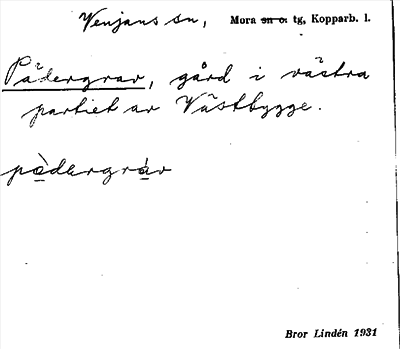 Venjans sn, Mora sn o. tg, Kopparb. l.
Pådergrav, gård i västra
partiet av Västbygge.
pòdergràv
Bror Lindén 1931